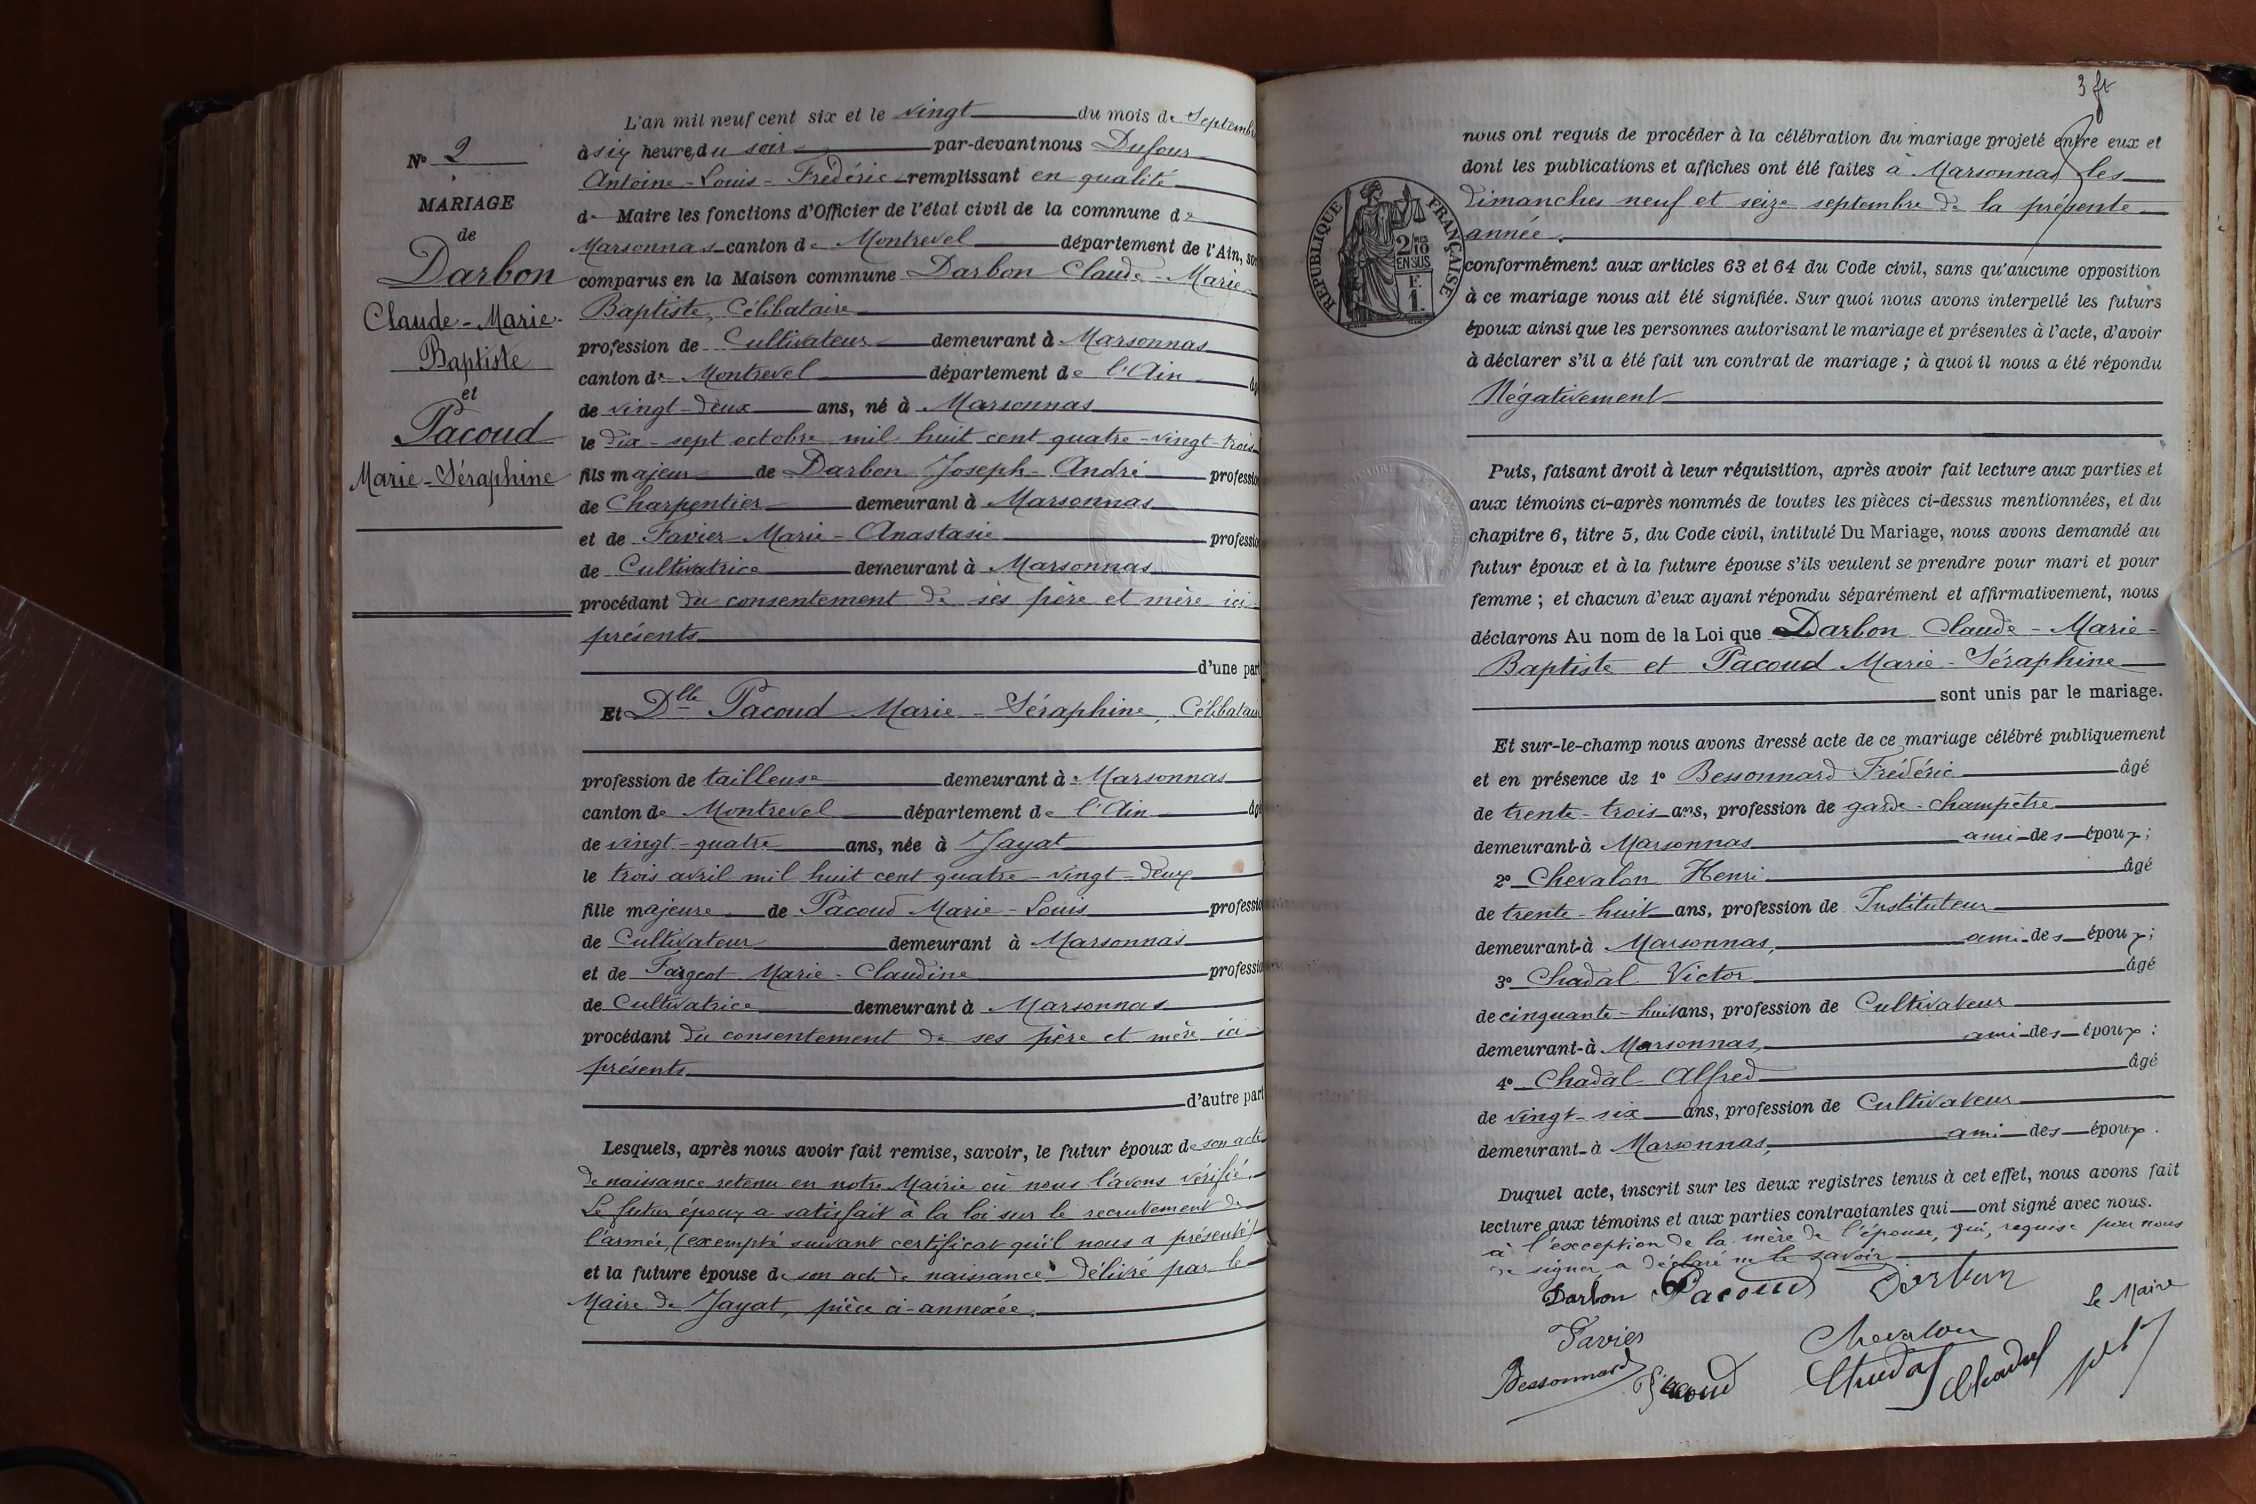 N° 2
MARIAGE
de
Darbon
Claude-Marie-
Baptiste
et
Pacoud
Marie-Séraphine
L'an mil neuf cent six et le vingt du mois de Septembre
à six heures du soir par-devant nous Dufour
Antoine-Louis-Frédéric remplissant en qualité
de Maire les fonctions d'Officier de l'état civil de la commune de
Marsonnas canton de Montrevel département de l'Ain, sont
comparus en la Maison commune Darbon Claude-Marie-
Baptiste, Célibataire
profession de Cultivateur demeurant à Marsonnas
canton de Montrevel département de l'Ain âgé
de vingt-deux ans, né à Marsonnas
le dix-sept octobre mil huit cent quatre-vingt-trois
fils majeur de Darbon Joseph-André profession
de Charpentier demeurant à Marsonnas
et de Favier Marie-Anastasie profession
de Cultivatrice demeurant à Marsonnas
procédant du consentement de ses père et mère ici
présents
d'une part
Et Dlle Pacoud Marie-Séraphine, Célibataire
profession de tailleuse demeurant à Marsonnas
canton de Montrevel département de l'Ain âgé
de vingt-quatre ans, née à Jayat
le trois avril mil huit cent quatre-vingt-deux
fille majeure de Pacoud Marie-Louis profession
de Cultivateur demeurant à Marsonnas
et de Fargeot Marie-Claudine profession
de Cultivatrice demeurant à Marsonnas
procédant du consentement de ses père et mère ici
présents
d'autre part
Lesquels, après nous avoir fait remise, savoir, le futur époux de son acte
de naissance retenu en notre Mairie où nous l'avons vérifié.
Le futur époux a satisfait à la loi sur le recrutement de
l'armée, (exempté suivant certificat qu'il nous a présenté)
et la future épouse de son acte de naissance délivré par le
Maire de Jayat, pièce ci-annexée.
3 ft
nous ont requis de procéder à la célébration du mariage projeté entre eux et
dont les publications et affiches ont été faites à Marsonnas les
dimanches neuf et seize septembre de la présente
année.
RÉPUBLIQUE FRANÇAISE
2/10 EN SUS
F. 1.
conformément aux articles 63 et 64 du Code civil, sans qu'aucune opposition
à ce mariage nous ait été signifiée. Sur quoi nous avons interpellé les futurs
époux ainsi que les personnes autorisant le mariage et présentes à l'acte, d'avoir
à déclarer s'il a été fait un contrat de mariage ; à quoi il nous a été répondu
Négativement
Puis, faisant droit à leur réquisition, après avoir fait lecture aux parties et
aux témoins ci-après nommés de toutes les pièces ci-dessus mentionnées, et du
chapitre 6, titre 5, du Code civil, intitulé Du Mariage, nous avons demandé au
futur époux et à la future épouse s'ils veulent se prendre pour mari et pour
femme ; et chacun d'eux ayant répondu séparément et affirmativement, nous
déclarons Au nom de la Loi que Darbon Claude-Marie-
Baptiste et Pacoud Marie-Séraphine
sont unis par le mariage.
Et sur-le-champ nous avons dressé acte de ce mariage célébré publiquement
et en présence de 1° Bessonnard Frédéric âgé
de trente-trois ans, profession de garde-champêtre
demeurant à Marsonnas ami des époux ;
2° Chevalon Henri âgé
de trente-huit ans, profession de Instituteur
demeurant à Marsonnas, ami des époux ;
3° Chadal Victor âgé
de cinquante-huit ans, profession de Cultivateur
demeurant à Marsonnas, ami des époux :
4° Chadal Alfred âgé
de vingt-six ans, profession de Cultivateur
demeurant à Marsonnas, ami des époux.
Duquel acte, inscrit sur les deux registres tenus à cet effet, nous avons fait
lecture aux témoins et aux parties contractantes qui ont signé avec nous.
à l'exception de la mère de l'épouse, qui, requise par nous
de signer a déclaré ne le savoir
Darbon Pacoud Darbon
Le Maire
Favier Chevalon
Bessonnard Pacoud Chadal Chadal